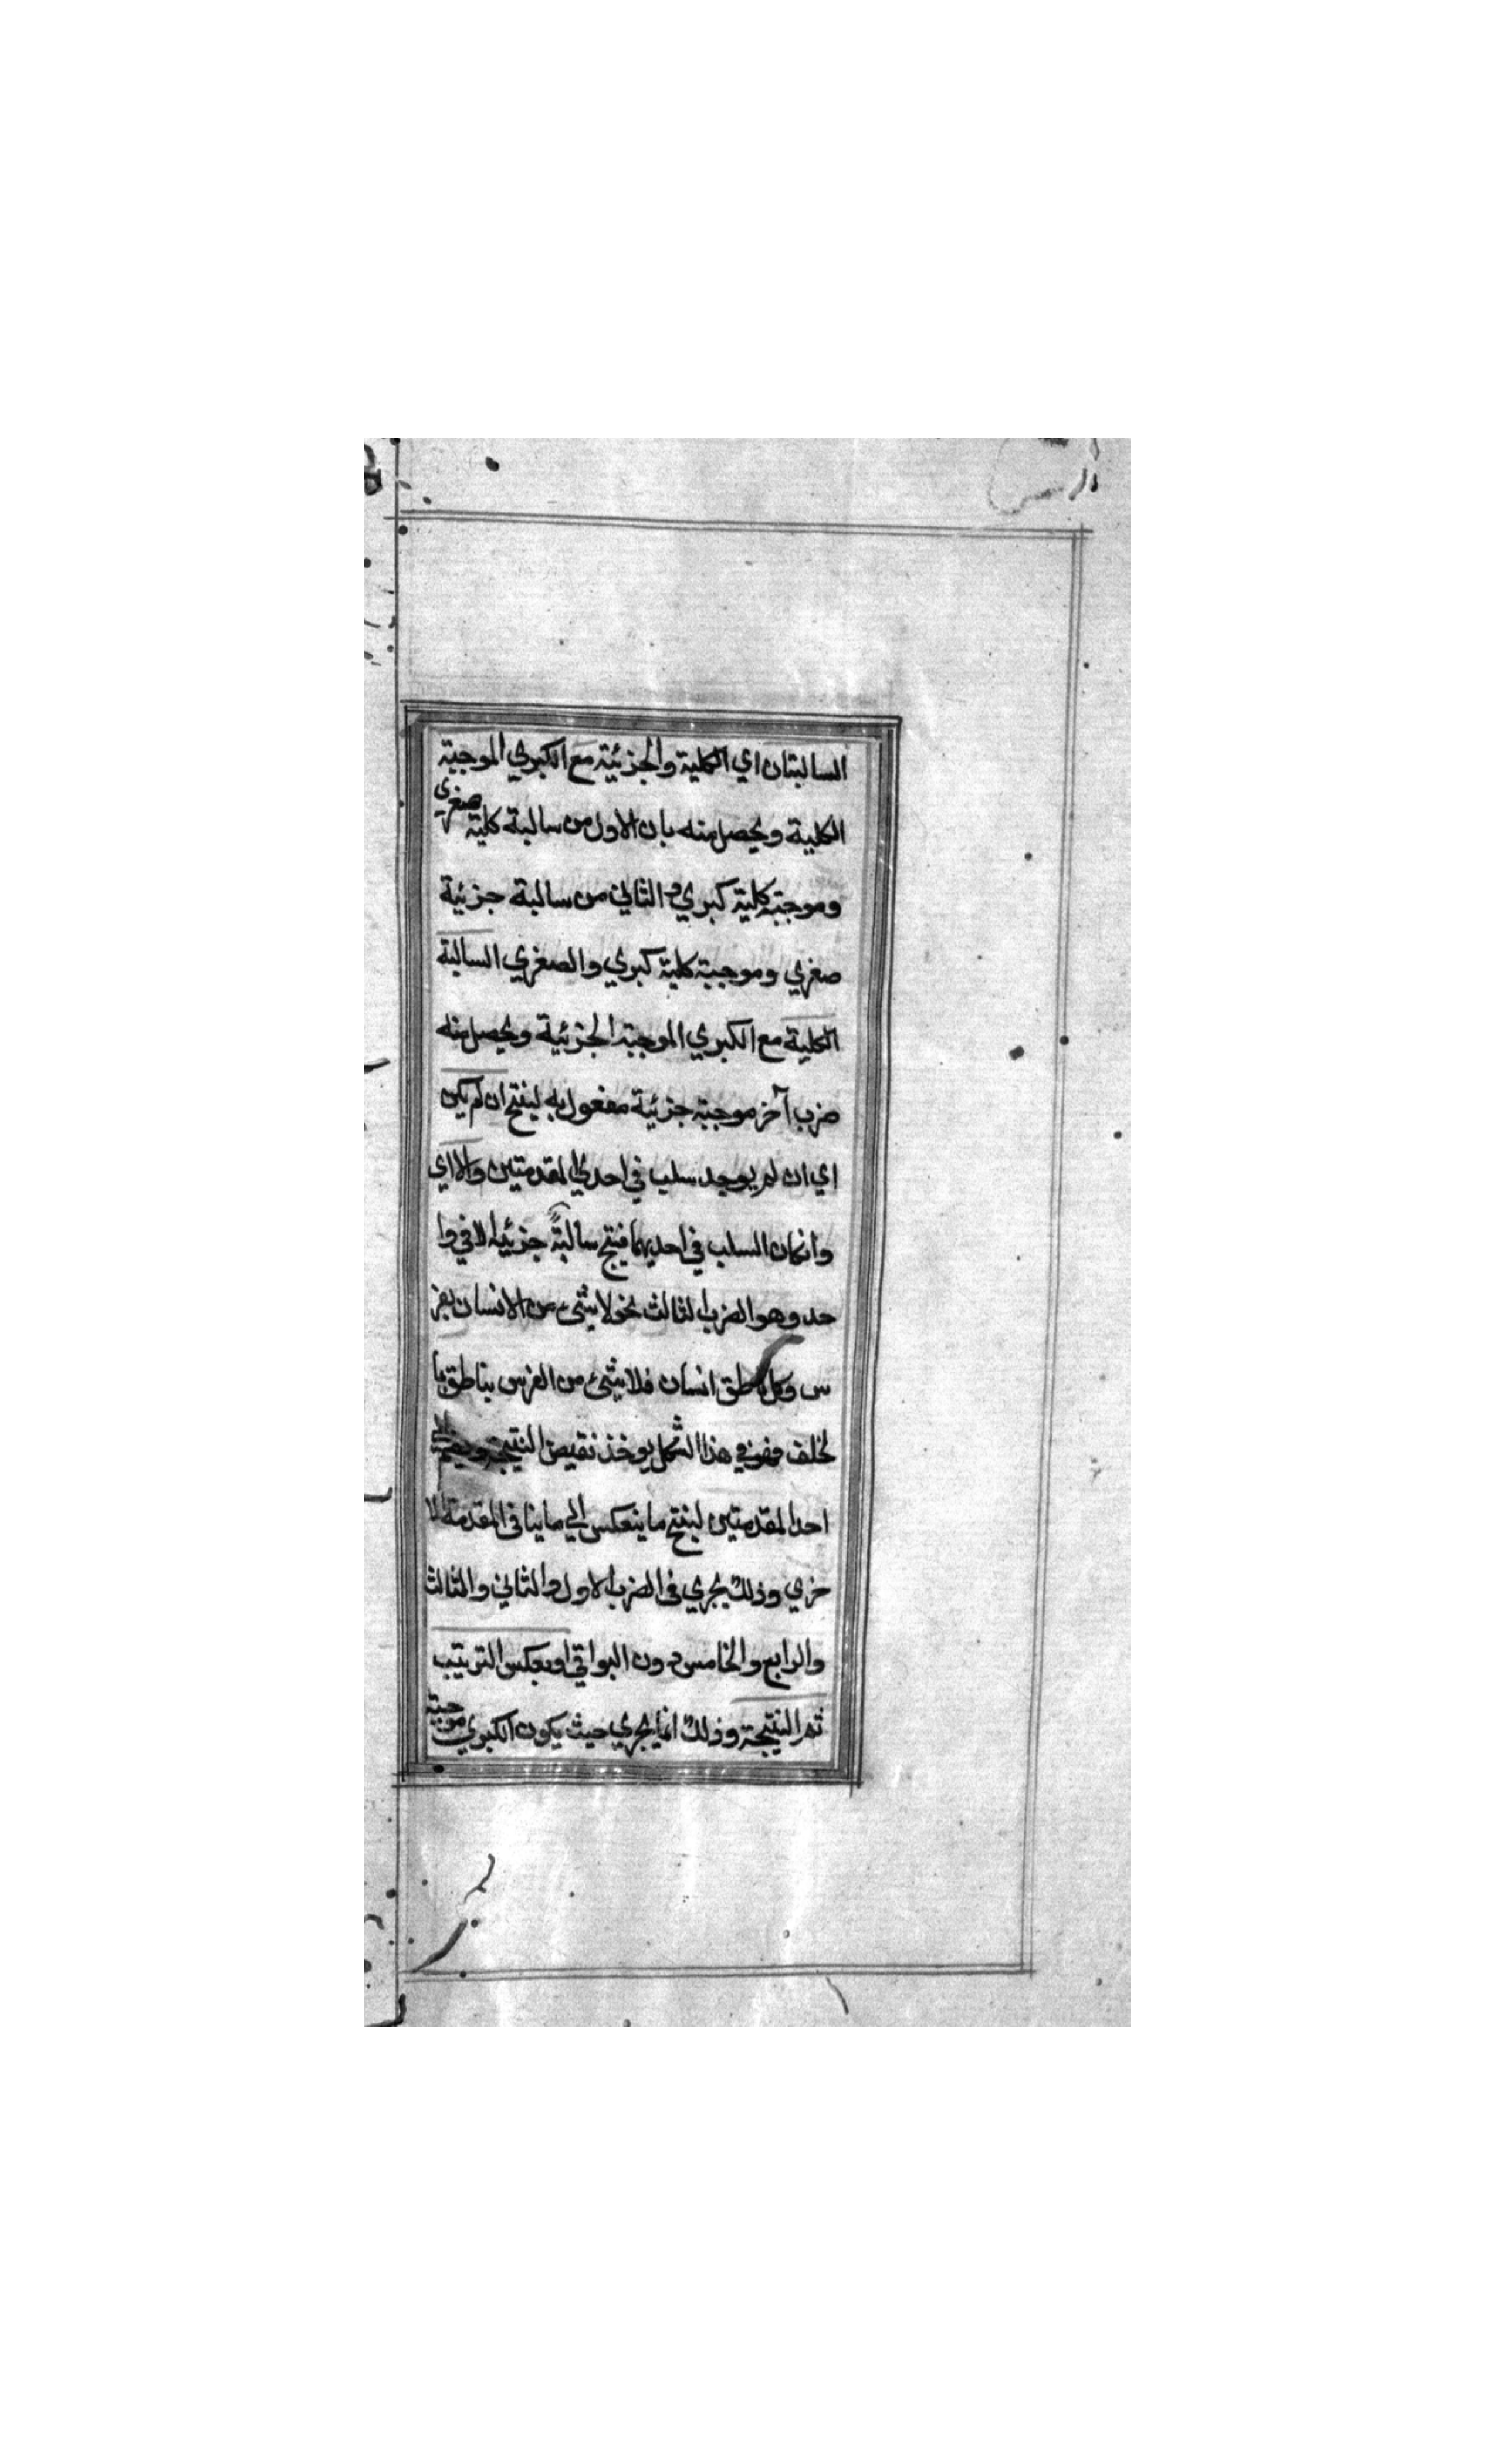 السالبتان اي الكلية والجزئية مع الكبري الموجبة
الكلية ويحصل منه بان الاول من سالبة كلية صغري
وموجبة كلية كبري والثاني من سالبة جزئية
صغري وموجبة كلية كبري والصغري السالبة
الكلية مع الكبري الموجبة الجزئية ويحصل منه
ضرب آخر موجبة جزئية مفعول به لينتج ان لم يكن
اي ان لم يوجد سلب في احدي المقدمتين والا اي
وانكان السلب في احديهما فينتج سالبةً جزئية الا في وا
حد وهو الضرب الثالث نحو لا شئ من الانسان بفر
س وكل ناطق انسان فلا شئ من الفرس بناطق با
لخلف وهو في هذا الشكل يوخذ نقيض النتيجة ويضم الي
احد المقدمتين لينتج ما ينعكس الي ما ينافي المقدمة الا
خري وذلك يجري في الضرب الاول والثاني والثالث
والرابع والخامس دون البواقي او بعكس الترتيب
ثم النتيجة وذلك انما يجري حيث يكون الكبري موجبة